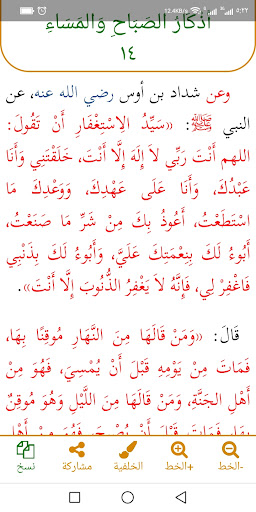 12.4KB/s ٥:٢٢
أَذْكَارُ الصَبَاحِ وَالمَسَاءِ
١٤
وعن شداد بن أوس رضي الله عنه، عن
النبي ﷺ: «سَيِّدُ الِاسْتِغْفَارِ أَنْ تَقُولَ:
اللهم أَنْتَ رَبِّي لَا إِلَهَ إِلَّا أَنْتَ، خَلَقْتَنِي وَأَنَا
عَبْدُكَ، وَأَنَا عَلَى عَهْدِكَ، وَوَعْدِكَ مَا
اسْتَطَعْتُ، أَعُوذُ بِكَ مِنْ شَرِّ مَا صَنَعْتُ،
أَبُوءُ لَكَ بِنِعْمَتِكَ عَلَيَّ، وَأَبُوءُ لَكَ بِذَنْبِي
فَاغْفِرْ لِي، فَإِنَّهُ لَا يَغْفِرُ الذُّنُوبَ إِلَّا أَنْتَ».
قَالَ: «وَمَنْ قَالَهَا مِنَ النَّهَارِ مُوقِنًا بِهَا،
فَمَاتَ مِنْ يَوْمِهِ قَبْلَ أَنْ يُمْسِيَ، فَهُوَ مِنْ
أَهْلِ الجَنَّةِ، وَمَنْ قَالَهَا مِنَ اللَّيْلِ وَهُوَ مُوقِنٌ
بِهَا، فَمَاتَ قَبْلَ أَنْ يُصْبِحَ، فَهُوَ مِنْ أَهْلِ
-الخط +الخط الخلفية مشاركة نسخ